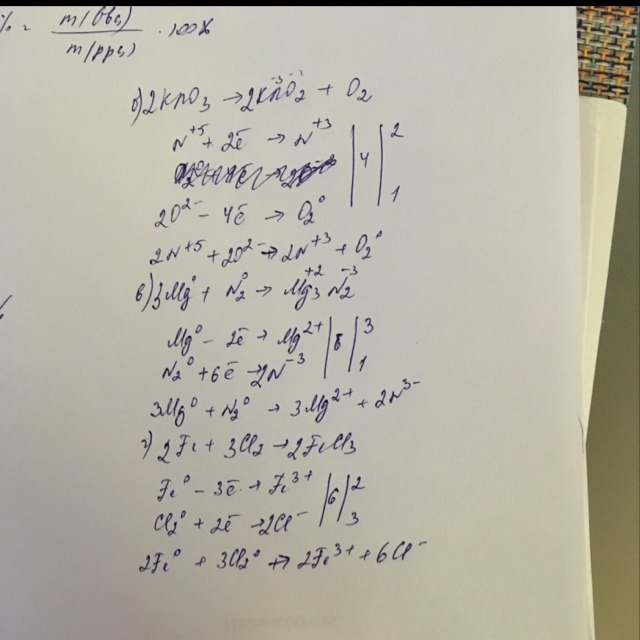 % = m(бва) / m(рра) · 100%
б) 2KNO3 → 2KNO2 + O2
N+5 + 2ē → N+3 | 4 | 2
2O2- - 4ē → O2° | 1
2N+5 + 2O2- → 2N+3 + O2°
в) 3Mg° + N2° → Mg3+2 N2-3
Mg° - 2ē → Mg2+ | 6 | 3
N2° + 6ē → 2N-3 | 1
3Mg° + N2° → 3Mg2+ + 2N3-
г) 2Fe + 3Cl2 → 2FeCl3
Fe° - 3ē → Fe3+ | 6 | 2
Cl2° + 2ē → 2Cl- | 3
2Fe° + 3Cl2° → 2Fe3+ + 6Cl-